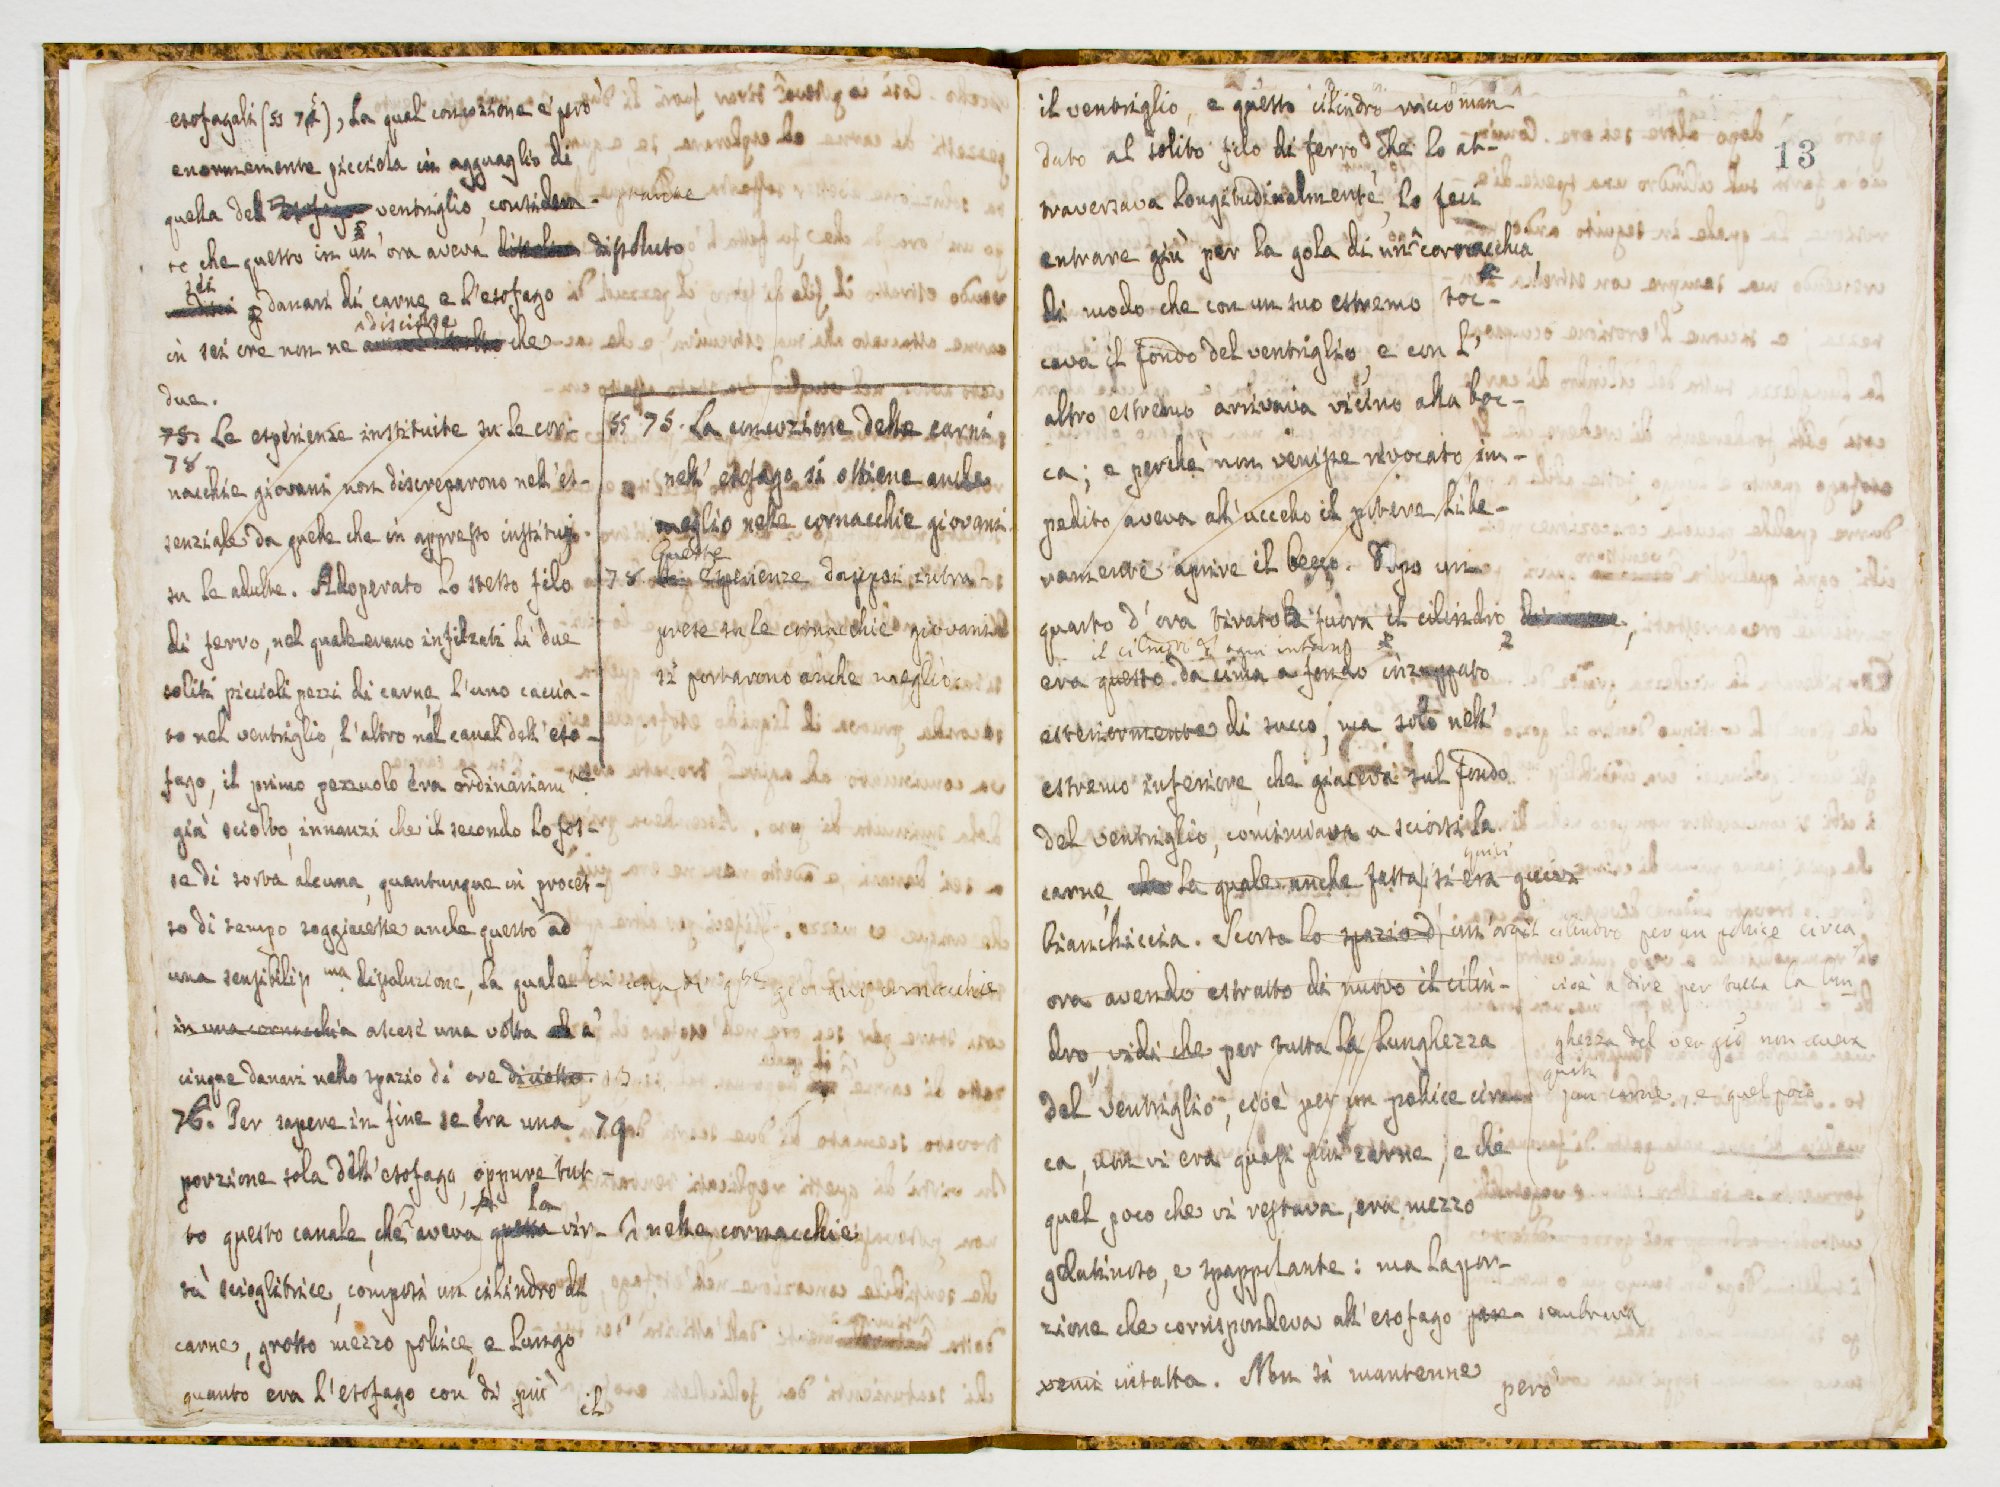 esofagali (§§ 75), la qual concozione e però
enormemente picciola in agguaglio di
quella del ventriglio, consideran-
te che questo in un'ora aveva disciolto
sei danari di carne e l'esofago
in sei ore non ne disciolse che
due.
75. Le esperienze instituite su le cor-
78
nacchie giovani non discreparono nell'es-
senziale da quelle che in appresso instituii
su le adulte. Adoperato lo stesso filo
di ferro, nel quale erano infilzati li due
soliti piccioli pezzi di carne, l'uno caccia-
to nel ventriglio, l'altro nel canal dell'eso-
fago, il primo pezzuolo era ordinariam.te
già sciolto, innanzi che il secondo lo fos-
se di sorta alcuna, quantunque in proces-
so di tempo soggiacesse anche questo ad
una sensibiliss.ma dissoluzione, la quale
giovani cornacchie
in una cornacchia ascese una volta a
cinque danari nello spazio di ore diciotto.
76. Per sapere in fine se era una 79.
porzione sola dell'esofago, oppure tut-
la
to questo canale, che aveva questa vir- nelle cornacchie
tù scioglitrice, composi un cilindro di
carne, grosso mezzo pollice, e lungo
quanto era l'esofago con di più
il
§§ 75. La concozione delle carni
nell'esofago si ottiene anche
meglio nelle cornacchie giovani.
Queste
78. Le esperienze dappoi intra-
prese su le cornacchie giovani
si portarono anche meglio.
13
il ventriglio, e questo cilindro raccoman-
dato al solito filo di ferro che lo at-
traversava longitudinalmente, lo feci
entrare giù per la gola di una cornacchia,
di modo che con un suo estremo toc-
cava il fondo del ventriglio, e con l'
altro estremo arrivava vicino alla boc-
ca; e perchè non venisse rivocato, im-
pedito aveva all'uccello il potere libe-
ramente aprire il becco. Dopo un
quarto d'ora tirato fuora il cilindro,
il cilindro
era questo da cima a fondo inzuppato
esteriormente di succo, ma solo nell'
estremo inferiore, che giaceva sul fondo
del ventriglio, cominciava a sciorsi la
carne, la quale anche fatta si era quivi
bianchiccia. Scorso lo spazio d'un'
ora avendo estratto di nuovo il cilin-
dro, vidi che per tutta la lunghezza
del ventriglio, cioè per un pollice cir-
ca, non vi era quasi più carne, e che
quel poco che vi restava, era mezzo
gelatinoso, e spappolante: ma la por-
zione che corrispondeva all'esofago sembrava
intatta. Non si mantenne
però
il cilindro per un pollice circa
cioè a dire per tutta la lun-
ghezza del non aveva
quasi
più carne, e quel poco